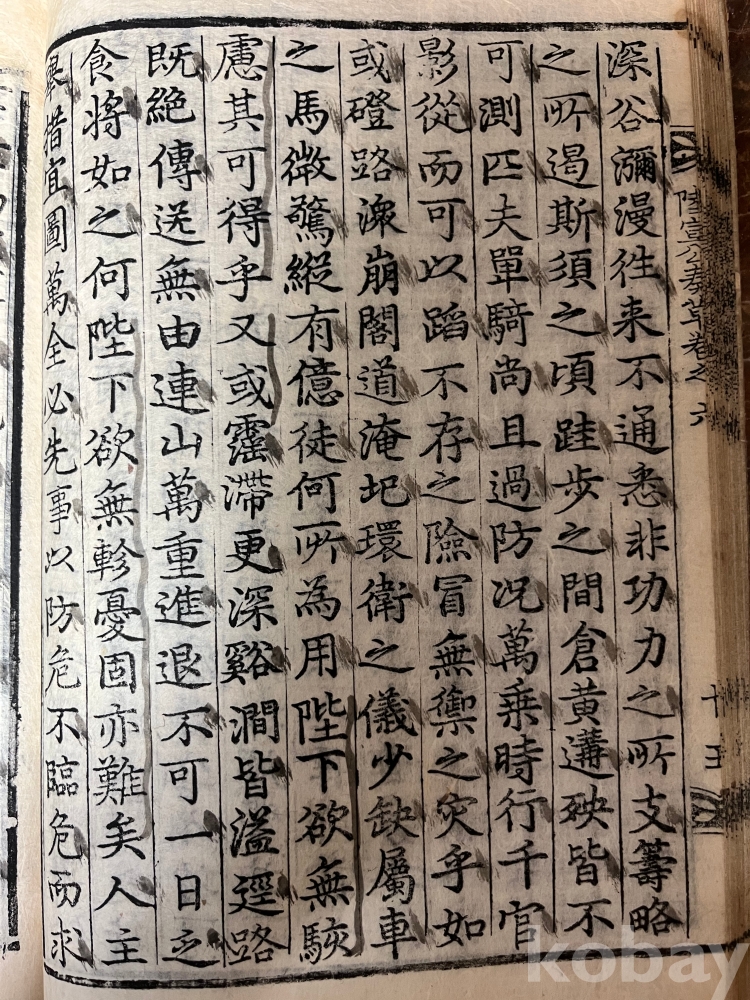 陸宣公奏草卷之六
十五
深谷瀰漫徃来不通悉非功力之所支籌略
之所遏斯須之頃跬步之間倉黃遘殃皆不
可測匹夫單騎尚且過防况萬乘時行千官
影從而可以蹈不存之險冒無禦之灾乎如
或磴路深崩閣道淹圯環衛之儀少缺屬車
之馬微驚縱有億徒何所為用陛下欲無駭
慮其可得乎又或霪滯更深谿澗皆溢逕路
既絶傳送無由連山萬重進退不可一日之
食將如之何陛下欲無軫憂固亦難矣人主
舉措宜圖萬全必先事以防危不臨危而求
kobay